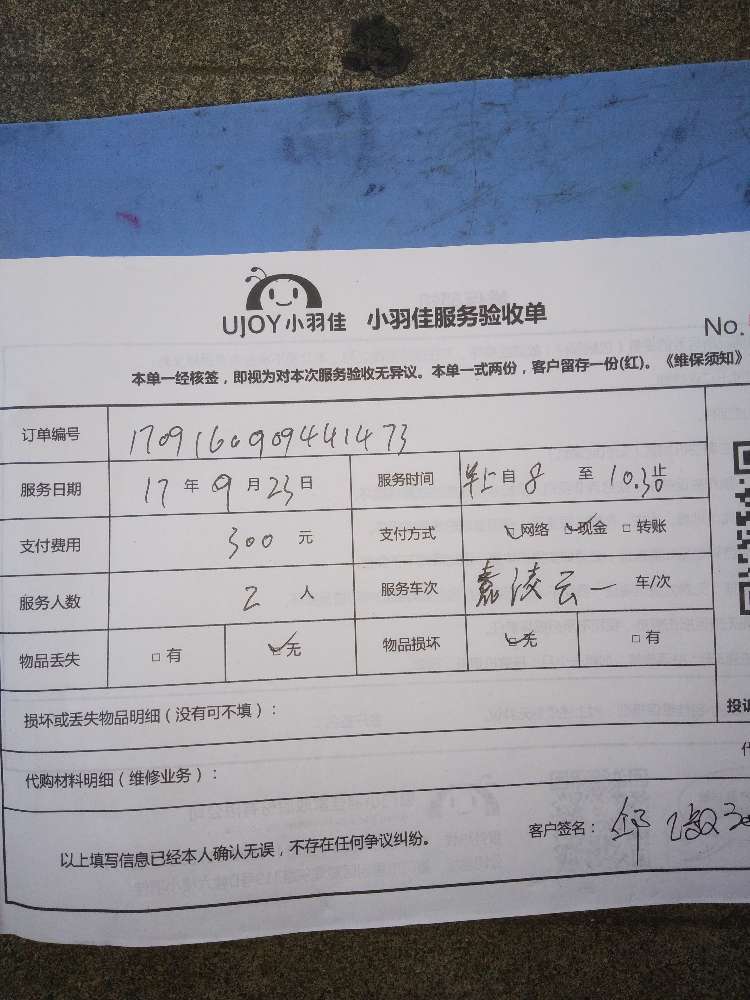 UJOY小羽佳 小羽佳服务验收单
No.
本单一经核签，即视为对本次服务验收无异议。本单一式两份，客户留存一份(红)。《维保须知》
订单编号 170916009094441473
服务日期 17 年 9 月 23 日 服务时间 早上 自 8 至 10.30 止
支付费用 300 元 支付方式 网络 现金 转账
服务人数 2 人 服务车次 云一 车/次
物品丢失 有 无 物品损坏 无 有
损坏或丢失物品明细（没有可不填）：
投诉
代购材料明细（维修业务）：
以上填写信息已经本人确认无误，不存在任何争议纠纷。 客户签名：